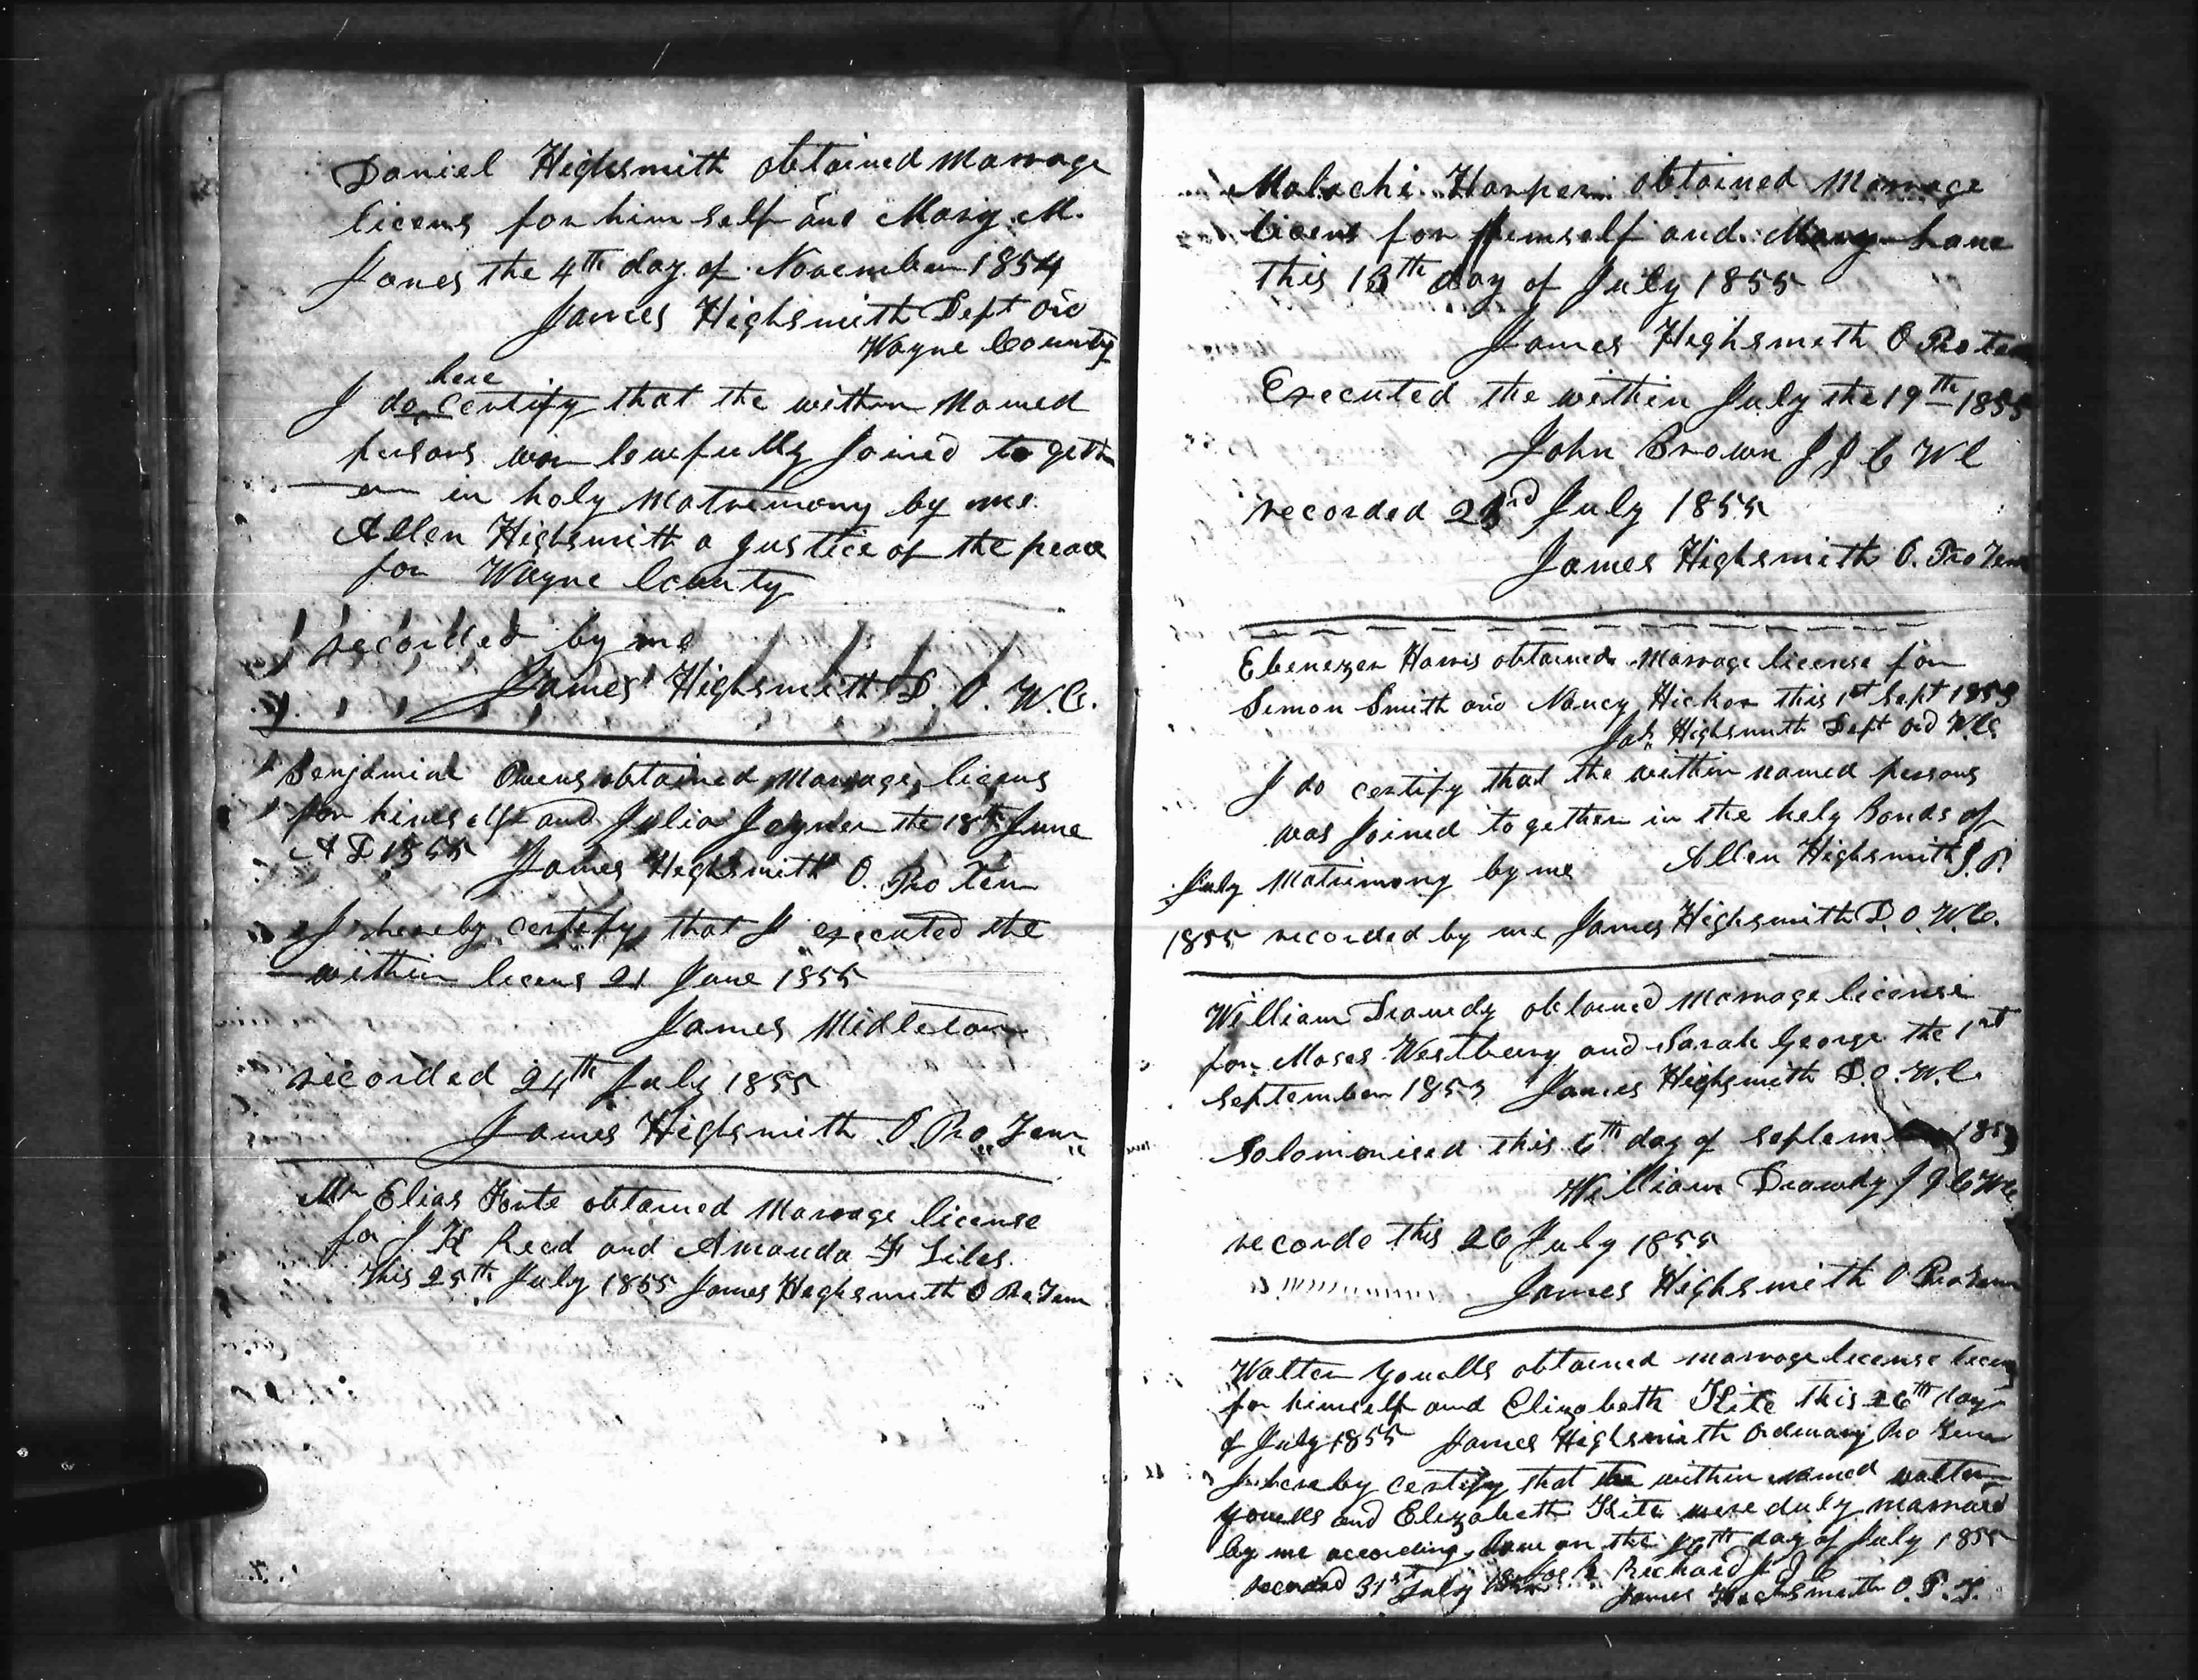 Daniel Highsmith obtained Marrage
licens for him self and Mary M.
Jones the 4th day of November 1854
James Highsmith Dept ord
Wayne County
here
I do certify that the within Named
persons wer lawfully Joined to geth
er in holy Matremony by me
Allen Highsmith a Justice of the peace
for Wayne County
recorded by me
James Highsmith D. O. W.C.
Benjamine Owens obtained Marrage licens
for himself and Julia Joyner the 18th June
A D 1855 James Highsmith O. Pro Tem
I hereby certify that I executed the
within licens 21 June 1855
James Middleton
recorded 24th July 1855
James Highsmith O. Pro Tem
Mr Elias Fort obtained Marrage license
for J. H Read and Amanda F Liles
this 25th July 1855 James Highsmith O Pro Tem
Malachi Harper obtained Marrage
licens for Himself and Mary Lane
this 13th day of July 1855
James Highsmith O Pro tem
Executed the within July the 19th 1855
John Brown J J C W C
recorded 23rd July 1855
James Highsmith O. Pro Tem
Ebenezer Harris obtained Marrage license for
Simon Smith and Nancy Hickox this 1st Sept 1853
Jas Highsmith Dept Ord W.C
I do certify that the within named persons
was Joined together in the holy Bonds of
Matrimony by me Allen Highsmith J.P.
July
1855 recorded by me James Highsmith D. O. W.C.
William Drawdy obtained Marrage license
for Moses Westberry and Sarah George the 1st
September 1853 James Highsmith D.O. W.C
Solomonised this 6th day of September 1853
William Drawdy J J C W C
recorde this 26 July 1855
James Highsmith O Pro Tem
Walter Youells obtained marrage license
for himself and Elizabeth Kite this 26th day
of July 1855 James Highsmith Ordinary Pro Tem
I hereby certify that the within named walter
Youells and Elizabeth Kite were duly marraed
by me according law on the day of July 1855
Richard J. J. C
recorded 31st July 1855 James Highsmith O. P. T.